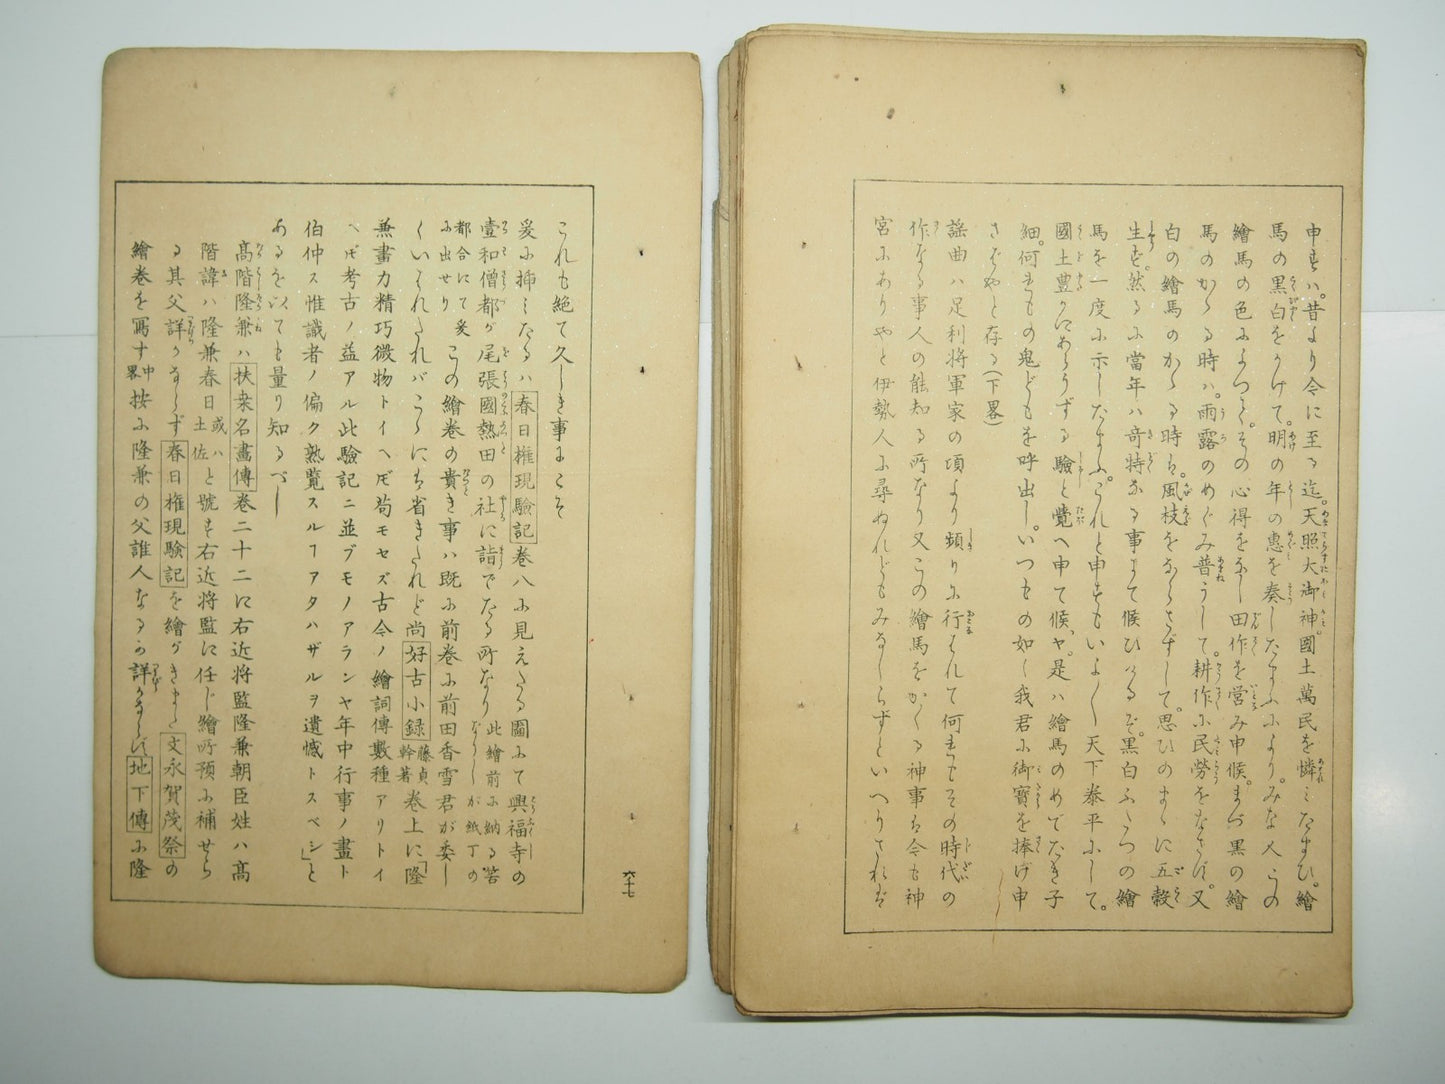 申すハ。昔より今に至る迄。天照大御神。國土萬民を憐ミたまひ。繪
馬の黒白をかけて。明の年の惠を奏したまふにより。みな人この
繪馬の色によつて。その心得をなし田作を営み申候。まづ黒の繪
馬のかゝる時ハ。雨露のめぐみ普うして。耕作に民勞をなさず。又
白の繪馬のかゝる時も。風枝をならさずして。思ひのまゝに五穀
生ず。然るに當年ハ奇特なる事にて候ひけるぞ。黒白ふたつの繪
馬を一度に示したまふ。これと申すもいよ〱天下泰平にして。
國土豊かにあらうずる驗と覺へ申て候。や。是ハ繪馬のめでたき子
細。何れもの鬼どもを呼出し。いつもの如く我君に御寳を捧げ申
さばやと存る(下畧)
謡曲ハ足利将軍家の頃より頻りに行はれて何れもその時代の
作なる事人の能知る所なり又この繪馬をかくる神事も今も神
宮にありやと伊勢人に尋ぬれどもみなしらずといへりされば
これも絶て久しき事にこそ
爰に挿ミたるハ春日権現驗記巻八に見えたる圖にて興福寺の
壹和僧都が尾張國熱田の社に詣でたる所なり此繪前に納る筈なりしが紙丁の
都合にて爰に出せりこの繪巻の貴き事ハ既に前巻に前田香雪君が委し
くいはれたれバこゝにも省きたれど尚好古小録藤貞幹著巻上に「隆
兼畫力精巧微物トイヘ𪜈苟モセズ古今ノ繪詞傳數種アリトイ
ヘ𪜈考古ノ益アル此驗記ニ並ブモノアランヤ年中行事ノ畫ト
伯仲ス惟識者ノ偏ク熟覧スルヿアタハザルヲ遺憾トスベシ」と
あるを以ても量り知るべし
高階隆兼ハ扶桒名畫傳巻二十二に右近将監隆兼朝臣姓ハ高
階諱ハ隆兼春日或ハ土佐ハと號す右近将監に任じ繪所預に補せら
る其父詳かならず春日権現驗記を繪がきまた文永賀茂祭の
繪巻を冩す中畧按に隆兼の父誰人なるか詳かならず地下傳に隆
六十七